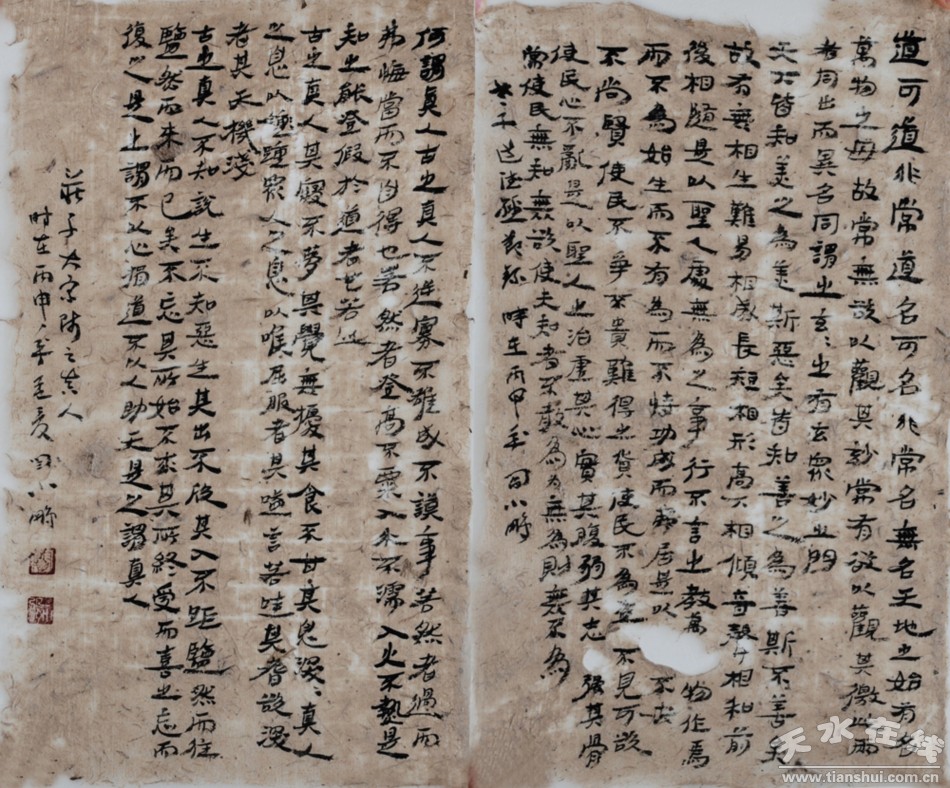 道可道非常道名可名非常名無名天地之始有名
萬物之母故常無欲以觀其妙常有欲以觀其徼此兩
者同出而異名同謂之玄〻之有玄眾妙之門
天下皆知美之為美斯惡矣皆知善之為善斯不善矣
故有無相生難易相成長短相形高下相傾音聲相和前
後相隨是以聖人處無為之事行不言之教萬物作焉
而不為始生而不有為而不恃功成而弗居是以不去
不尚賢使民不爭不貴難得之貨使民不為盜不見可欲
使民心不亂是以聖人之治虛其心實其腹弱其志強其骨
常使民無知無欲使夫知者不敢為為無為則無不為
老子道德經 時在丙申 小鵬
何謂真人古之真人不逆寡不雄成不謨事若然者過而
弗悔當而不自得也若然者登高不栗入水不濡入火不熱是
知之能登假於道者也若此
古之真人其寢不夢其覺無憂其食不甘其息深〻真人
之息以踵眾人之息以喉屈服者其嗌言若哇其耆欲深
者其天機淺
古之真人不知說生不知惡生其出不訢其入不距翛然而往
翛然而來而已矣不忘其所始不求其所終受而喜之忘而
復之是之謂不以心損道不以人助天是之謂真人
莊子大宗師之真人
時在丙申 小鵬
天水在线
www.tianshui.com.cn